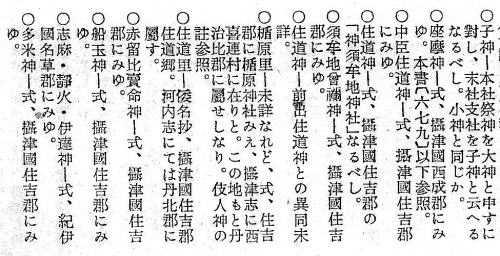 ○子神―本社祭神を大神と申すに
對し、末社支社を子神と云へる
なるべし。小神と同じか。
○座摩神―式、攝津國西成郡にみ
ゆ。本書〔六七九〕以下參照。
○中臣住道神―式、攝津國住吉郡
にみゆ。
○住道神―式、攝津國住吉郡の
「神須牟地神社」なるべし。
○須牟地曾禰神―式、攝津國住吉
郡にみゆ。
○住道神―前出住道神との異同未
詳。
○楯原里―未詳なれど、式、住吉
郡に楯原神社みえ、攝津志に西
喜連村に在りと。この地もと丹
治比郡に屬せしなり。伎人神の
註參照。
○住道里―倭名抄、攝津國住吉郡
住道郷。河内志にては丹北郡に
屬す。
○赤留比賣命神―式、攝津國住吉
郡にみゆ。
○船玉神―式、攝津國住吉郡にみ
ゆ。
○志麻・靜火・伊達神―式、紀伊
國名草郡にみゆ。
○多米神―式、攝津國住吉郡にみ
ゆ。